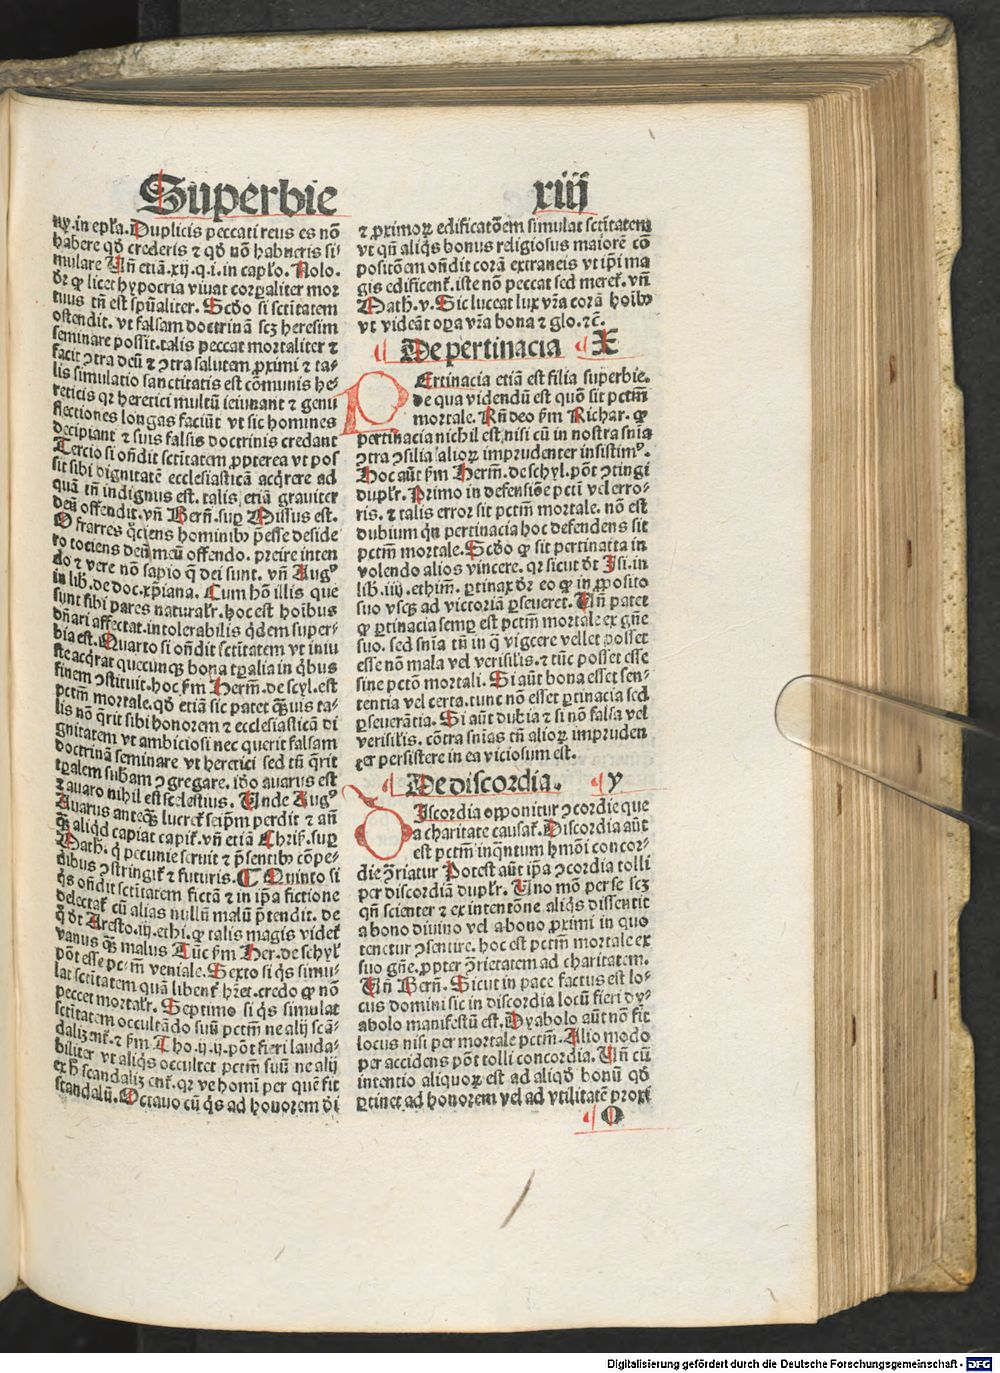 Superbie
xiij
ny. in epła. Duplicis peccati reus es nō
habere qđ crederis ⁊ qđ nō habueris si-
mulare Vñ etiā. xij. q. i. in capło. Nolo.
đr ꝙ licet hypocria viuat corꝑaliter mor
tuus tñ est spũaliter. Scđo si sctītatem
ostendit. vt falsam doctrinā scꝫ heresim
seminare possit. talis peccat mortaliter ⁊
facit ꝯtra deū ⁊ ꝯtra salutem ꝓximi ⁊ ta-
lis simulatio sanctitatis est cōmunis he-
reticis qꝛ heretici multū ieiunant ⁊ genu
flectiones longas faciūt vt sic homines
decipiant ⁊ suis falsis doctrinis credant
Tercio si onđit sctītatem ꝓpterea vt pos
sit sibi dignitatē ecclesiasticā acq̄rere ad
quā tñ indignus est. talis etiā grauiter
deū offendit. vñ Berñ. suꝑ Missus est.
O frarres q̇ciens hominibꝰ p̄esse deside
ro tociens deū meū offendo. preire inten
do ⁊ vere nō sapio q̄ dei sunt. vñ Augꝰ
in lib. de doc. xp̄iana. Cum hō illis que
sunt sibi pares naturalr̄. hoc est hoībus
dñari affectat. intolerabilis q̇dem super-
bia est. Quarto si onđit sctītatem vt iniu
ste acq̇rat quecunqꝫ bona tꝑalia in q̇bus
finem ꝯstituit. hoc ẜm Herm̄. de scyl. est
pctm̄ mortale. qđ etiā sic patet qꝫuis ta-
lis nō q̄rit sibi honorem ⁊ ecclesiasticā di
gnitatem vt ambiciosi nec querit falsam
doctrinā seminare vt heretici sed tñ q̄rit
tꝑalem subam ꝯgregare. iđo auarus est
⁊ auaro nihil est scelestius. Unde Augꝰ
Auarus anteqꝫ lucret᷑ seip̄m perdit ⁊ añ
qꝫ aliqđ capiat capit᷑. vñ etiā Chris̄. suꝑ
Math. q̇ pecunie seruit ⁊ p̄sentibꝰ cōpe-
dibus ꝯstringit᷑ ⁊ futuris. ¶ Quinto si
q̇s onđit sctītatem fictā ⁊ in ip̄a fictione
delectat᷑ cū alias nullū malū p̄tendit. de
q̇ đt Aresto. iij. ethi. ꝙ talis magis videt᷑
vanus qꝫ malus Tūc ẜm Her. de schyl̄
pōt esse pctm̄ veniale. Sexto si q̇s simu-
lat sctītatem quā libent᷑ hr̄et. credo ꝙ nō
peccet mortalr̄. Septimo si q̇s simulat
sctītatem occultādo suū pctm̄ ne alij scā-
dalizent᷑. ⁊ ẜm Tho. ij. ij. pōt fieri lauda-
biliter vt aliq̇s occultet pctm̄ suū ne alij
ex ħ scandalizent᷑. qꝛ ve homi per quē fit
scandalū. Octauo cū q̇s ad honorem đi
⁊ ꝓximoꝝ edificatōem simulat sctītatem
vt qñ aliq̇s bonus religiosus maiorē cō
positōem onđit corā extraneis vt ip̄i ma
gis edificent᷑. iste nō peccat sed meret᷑. vñ
Math. v. Sic luceat lux vr̄a corā hoībꝰ
vt videāt oꝑa vr̄a bona ⁊ glo. ⁊c̄.
¶ De pertinacia ¶ X
PErtinacia etiā est filia superbie.
de qua videndū est quōꝰ sit pctm̄
mortale. Rñdeo ẜm Richar. ꝙ
pertinacia nichil est. nisi cū in nostra snīa
ꝯtra ꝯsilia alioꝝ imprudenter insistimꝰ.
Hoc aūt ẜm Herm̄. de schyl. pōt ꝯtingi
duplr̄. Primo in defensiōe pcti vel erro-
ris. ⁊ talis error sit pctm̄ mortale. nō est
dubium qn̄ pertinacia hoc defendens sit
pctm̄ mortale. Scđo ꝙ sit pertinatia in
volendo alios vincere. qꝛ sicut đt Isi. in
lib. iiij. ethim̄. ꝑtinax đr eo ꝙ in ꝓposito
suo vsqꝫ ad victoriā ꝑseueret. Uñ patet
ꝙ ꝑtinacia semꝑ est pctm̄ mortale ex gn̄e
suo. sed snīa tñ in q̇ vigcere vellet posset
esse nō mala vel verisilis. ⁊ tūc posset esse
sine pctō mortali. Si aūt bona esset sen-
tentia vel certa. tunc non esset ꝑtinacia sed
ꝑseuerātia. Si aūt dubia ⁊ si nō falsa vel
verisilis. cōtra snīas tñ alioꝝ impruden
ter persistere in ea viciosum est.
¶ De discordia. ¶ y
DIscordia opponitur ꝯcordie que
a charitate causat᷑. Discordia aūt
est pctm̄ inq̄ntum hmōi concor-
die ꝯ̄riatur Potest aūt ip̄a ꝯcordia tolli
per discordiā duplr̄. Uno mō per se scꝫ
qñ scienter ⁊ ex intentōne aliq̇s dissentit
a bono diuino vel a bono ꝓximi in quo
tenetur ꝯsentire. hoc est pctm̄ mortale ex
suo gn̄e. ꝓpter ꝯ̄rietatem ad charitatem.
Uñ Berñ. Sicut in pace factus est lo-
cus domini sic in discordia locū fieri dy-
abolo manifestū est. Dyabolo aūt nō fit
locus nisi per mortale pctm̄. Alio modo
per accidens pōt tolli concordia. Uñ cū
intentio aliquoꝝ est ad aliqđ bonū qđ
ꝑtinet ad honorem vel ad vtilitatē proxi
¶ O
Digitalisierung gefördert durch die Deutsche Forschungsgemeinschaft - DFG